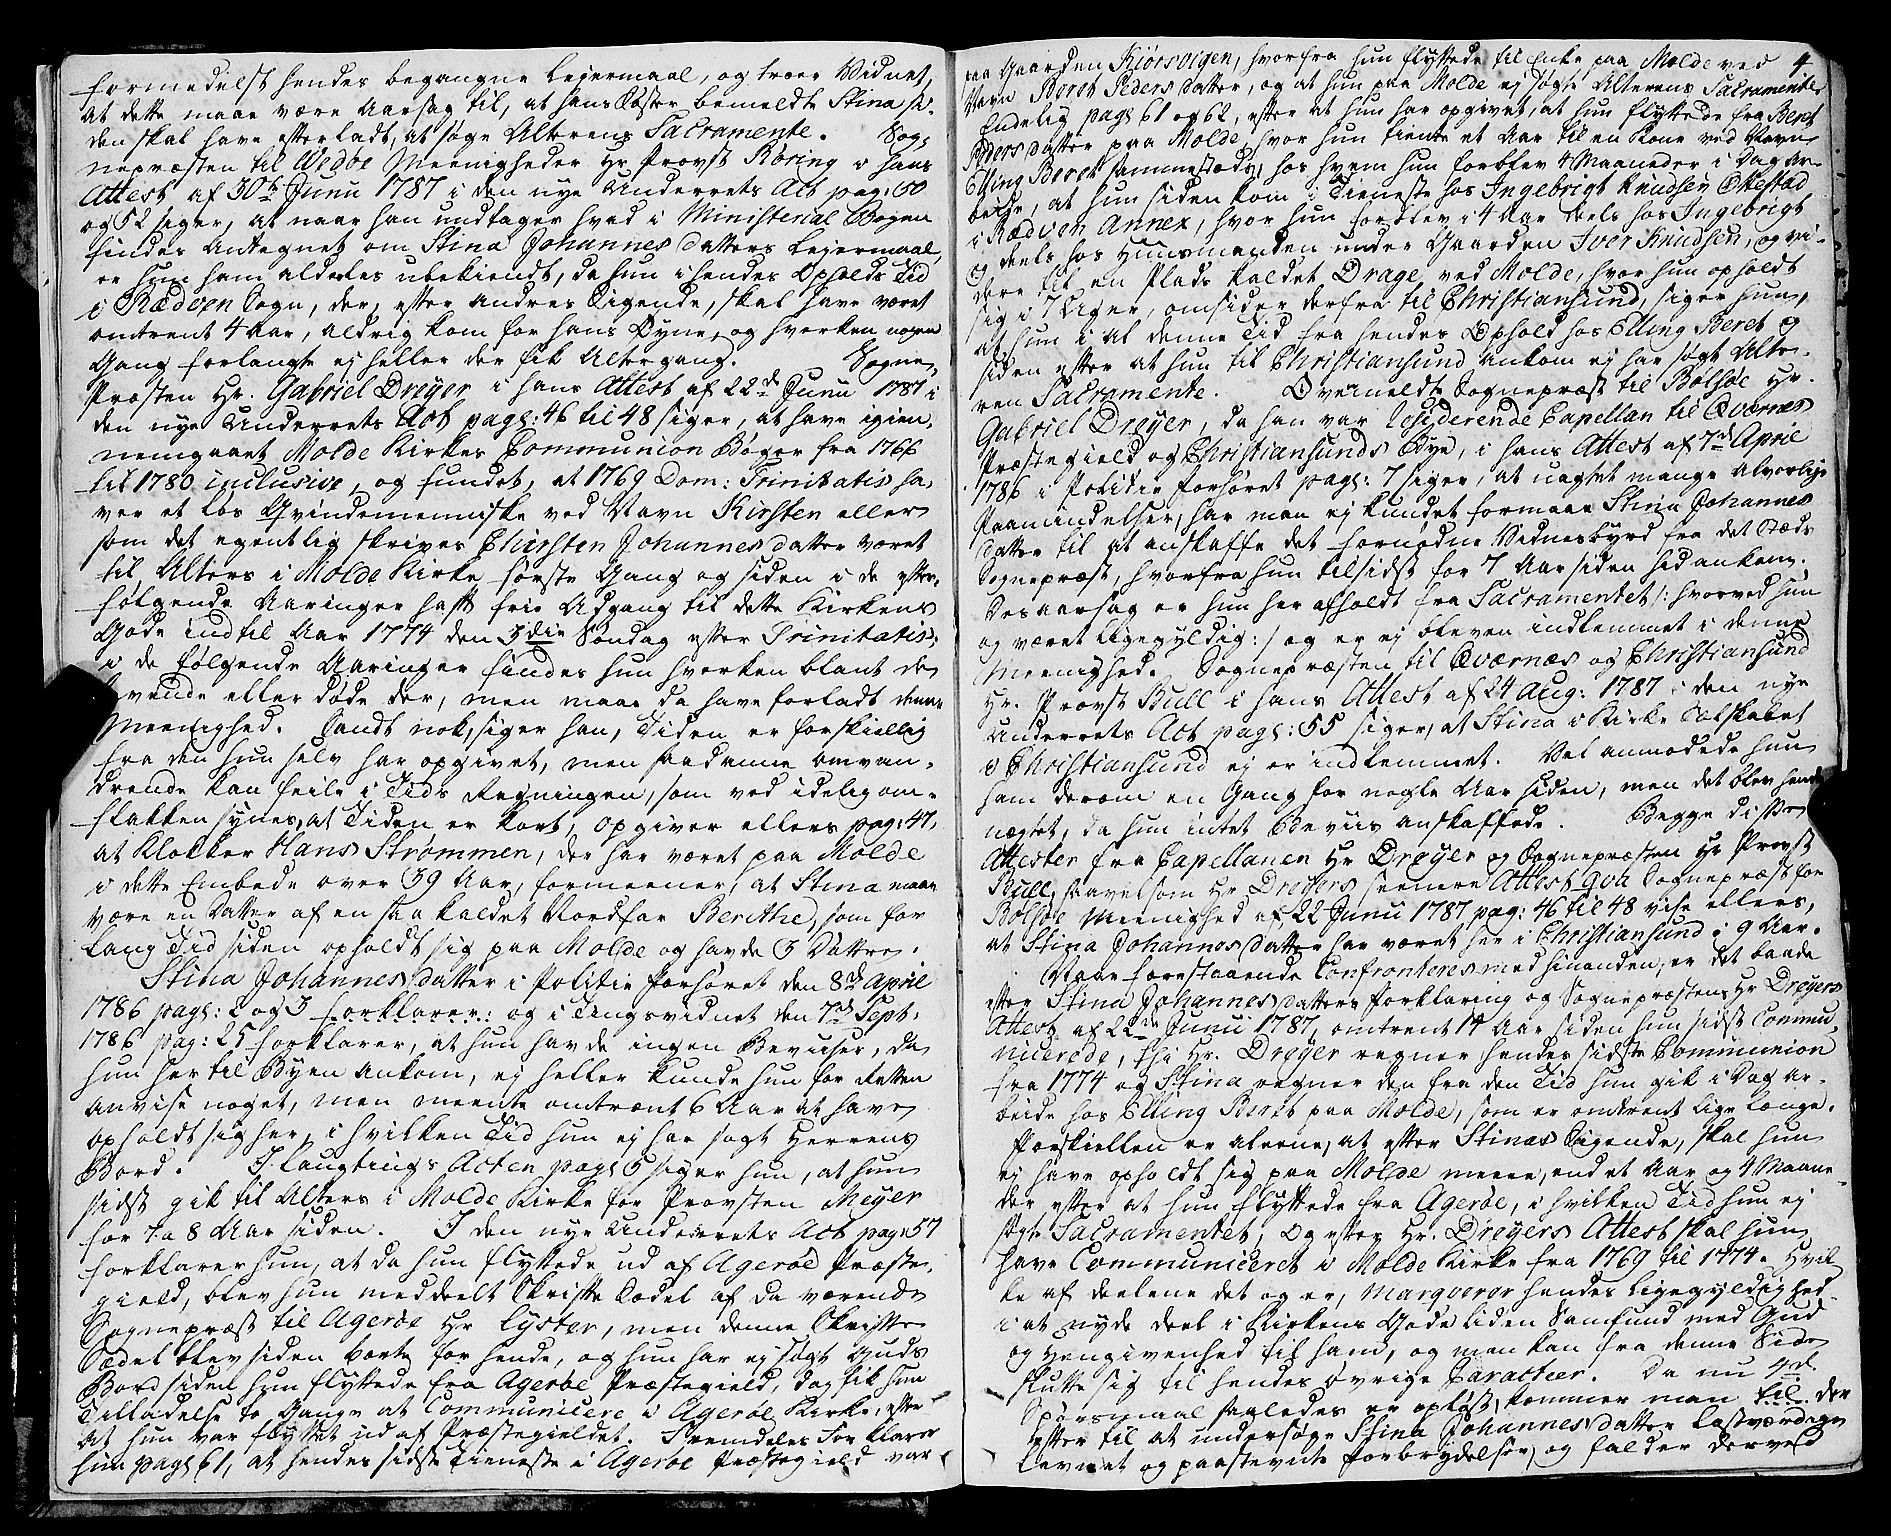 formedelst hendes begangne Lejermaal, og troer Vidnet,
at dette maae være Aarsag til, at hans Søster bemeldte Stina si-
den skal have efterladt, at søge Alterens Sacramente. Sog-
nepræsten til Wedøe Meenigheder Hr Provst Røring i hans
Attest af 30te Junii 1787 i den nye Underrets Act pag: 50
og 52 siger, at naar han undtager hvad i Ministerial Bogen
findes Antegnet om Stina Johannes datters Lejermaal,
er hun ham aldeeles ubekiendt, da hun i hendes Opholds Tid
i Rødven Sogn, der, efter andres Sigende, skal have været
omtrent 4 Aar, aldrig kom for hans Øyne, og hverken nogen
Gang forlangte ej heller der fik Altergang. Sogne-
Præsten Hr. Gabriel Dreyer i hans Attest af 22de Junii 1787 i
den nye Underrets Act pag: 46 til 48 siger, at have igien-
nemgaaet Molde Kirkes Communion Bøger fra 1766
til 1780 inclusive, og fundet, at 1769 Dom: Trinitatis ha-
ver et løs Qvindemenniske ved Navn Kirsten eller
som det egentlig skrives Chirsten Johannes datter været
til Alters i Molde Kirke første Gang og siden i de efter-
følgende Aaringer haft frie Adgang til dette Kirkens
Gode indtil Aar 1774 den 3die Søndag efter Trinitatis;
i de følgende Aaringer findes hun hverken blant de
levende eller døde der, men maae da have forladt denne
Meenighed. Sandt nok, siger han, Tiden er forskiellig
fra den hun selv har opgivet, men saadanne omvan-
drende kan feile i Tids Regningen, som ved idelig om-
flakken synes, at Tiden er kort, opgiver ellers pag: 47,
at Klokker Hans Strømmen, der har været paa Molde
i dette Embede over 39 Aar, formeener, at Stina maae
være en Datter af en saa kaldet Nordfar Berithe, som for
lang Tid siden opholdt sig paa Molde og havde 3 Døttre.
Stina Johannes datter i Politie Forhøret den 8de April
1786 pag: 2 og 3 forklarer: og i Tingsvidnet den 7de Sept:
1786 pag: 25 forklarer, at hun havde ingen Beviiser, da
hun her til Byen ankom, ej heller kunde hun for Retten
anvise noget, men meente omtrent 6 Aar at have
opholdt sig her, i hvilken Tid hun ej har søgt Herrens
Bord. I Laugtings Acten pag: 5 siger hun, at hun
sidst gik til Alters i Molde Kirke for Provsten Meyer
for 7 a 8 Aar siden. I den nye Underrets Act pag: 57
forklarer hun, at da hun flyttede ud af Agerøe Præste-
gield, blev hun meddeelt Skrifte Sædel af da værende
Sognepræst til Agerøe Hr Lyster, men denne Skrifte
Sædel blev siden borte for hende, og hun har ej søgt Guds
Bord siden hun flyttede fra Agerøe Præstegield, dog fik hun
Tilladelse to Gange at Communicere i Agerøe Kirke, efter
at hun var flyttet ud af Præstegieldet. Fremdeles Forklarer
hun pag: 61, at hendes sidste Tieneste i Agerøe Præstegield var
4
paa Gaarden Kiørsvigen, hvorfra hun flyttede til Enke paa Molde ved
Navn Beret Peders datter, og at hun paa Molde ej søgte Alterens Sacramente.
Endelig pag: 61 og 62, efter at hun har opgivet, at hun flyttede fra Beret
Peders datter paa Molde, hvor hun tiente et Aar til en Kone ved Navn
Elling Beret sammestæds, hos hvem hun forblev 4 Maaneder i Dag Ar-
beide, at hun siden kom i Tieneste hos Ingebrigt Knudsen Ekestad
i Rødven Annex, hvor hun forblev i 4 Aar deels hos Ingebrigt
og deels hos Huusmanden under Gaarden Iver Knudsen, og vi-
dere til en Plads kaldet Drage, ved Molde, hvor hun opholdt
sig i 7 Uger, omsider derfra til Christiansund, siger hun,
at hun i al denne Tid fra hendes Ophold hos Elling Beret og
siden efter at hun til Christiansund ankom ej har søgt Alte-
ren Sacramente. Overmeldte Sognepræst til Bolsøe Hr.
Gabriel Dreyer, da han var residerende Capellan til Qværnes
Præstegield og Christiansunds Bye, i hans Attest af 7de April
1786 i Politie Forhøret pag: 7 siger, at uagtet mange alvorlige
Paamindelser, har man ej kundet formaae Stina Johannes
datter til at anskaffe det fornødne Vidnesbyrd fra det Stæds
Sognepræst, hvorfra hun tilsidst for 7 Aar siden hid ankom.
Desaarsag er hun her afholdt fra Sacramentet /: hvorved hun
og været ligegyldig :/ og er ej bleven indlemmet i denne
Meenighed. Sognepræsten til Qværnæs og Christiansund
Hr. Provst Bull i hans Attest af 24 Aug: 1787 i den nye
Underrets Act pag: 55 siger, at Stina i Kirke Selskabet
i Christiansund ej er indlemmet. Vel anmodede hun
ham derom en Gang for nogle Aar siden, men det blev hende
nægtet, da hun intet Beviis anskaffede. Begge disse
Attester fra Capellanen Hr Dreyer og Sognepræsten Hr Provst
Bull, saavelsom Hr Dreyers seenere Attest qva Sognepræst for
Bolsøe Meenighed af 22 Junii 1787 pag: 46 til 48 vise ellers,
at Stina Johannes datter har været her i Christiansund i 9 Aar.
Naar forestaaende Confronteres med hinanden, er det baade
efter Stina Johannes datters Forklaring og Sognepræstens Hr Dreyers
Attest af 22de Junii 1787, omtrent 14 Aar siden hun sidst Commu-
nicerede, thi Hr. Dreyer regner hendes sidste Communion
fra 1774 og Stina regner den fra den Tid hun gik i Dag Ar-
beide hos Elling Beret paa Molde, som er omtrent lige længe.
Forskiellen er aleene, at efter Stinas Sigende, skal hun
ej have opholdt sig paa Molde meere, end et Aar og 4 Maane-
der efter at hun flyttede fra Agerøe, i hvilken Tid hun ej
søgte Sacramentet, og efter Hr. Dreyers Attest skal hun
have Communiceret i Molde Kirke fra 1769 til 1774. Hvil-
ke af deelene det og er, Marqverer hendes ligegyldighed
i at nyde deel i Kirkens Gode liden Samfund med Gud
og Hengivenhed til ham, og man kan fra denne Side
slutte sig til hendes øvrige Caracteer. Da nu 4de
Spørsmaal saaledes er opløst, kommer man til der
efter til at undersøge Stina Johannes datter Lastværdige
Levnet og paastevnte Forbrydelser, og falder derved